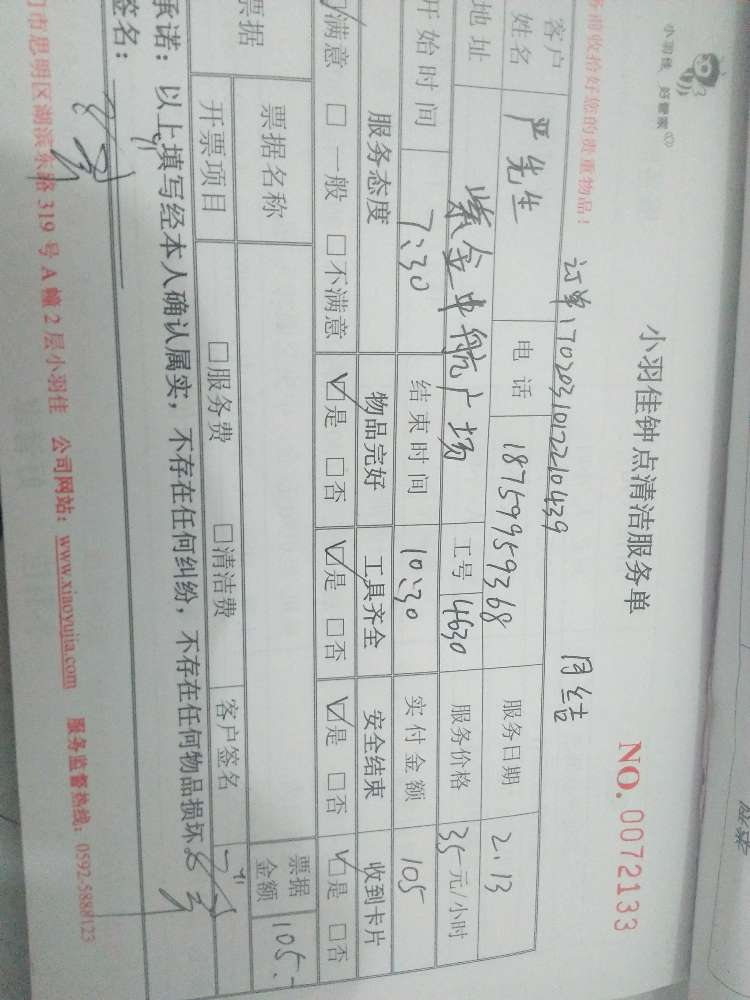 小羽佳 好管家
小羽佳钟点清洁服务单
NO. 0072133
收拾好您的贵重物品！
订单17020310122210439 月结
客户姓名 严先生 电话 18759959368 服务日期 2.13
地址 紫金业航广场 工号 4630 服务价格 35元/小时
开始时间 7:30 结束时间 10:30 实付金额 105
服务态度 物品完好 工具齐全 安全结束 收到卡片
☑满意 □一般 □不满意 ☑是 □否 ☑是 □否 ☑是 □否 ☑是 □否
票据
票据名称 票据金额 105.
开票项目 □服务费 □清洁费 客户签名
承诺：以上填写经本人确认属实，不存在任何纠纷，不存在任何物品损坏。
签名：
门市思明区湖滨东路 319 号 A 幢 2 层小羽佳 公司网站：www.xiaoyujia.com 服务监督热线：0592-5888123